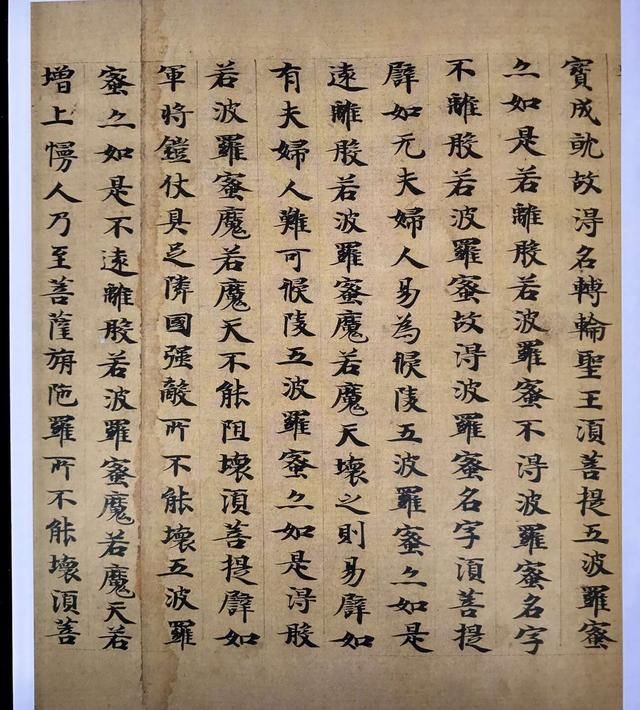 寳成就故得名轉輪聖王須菩提五波羅蜜
亦如是若離般若波羅蜜不得波羅蜜名字
不離般若波羅蜜故得波羅蜜名字須菩提
譬如无夫婦人易為侵陵五波羅蜜亦如是
遠離般若波羅蜜魔若魔天壞之則易譬如
有夫婦人難可侵陵五波羅蜜亦如是得般
若波羅蜜魔若魔天不能阻壞須菩提譬如
軍將鎧仗具足隣國强敵所不能壞五波羅
蜜亦如是不遠離般若波羅蜜魔若魔天若
增上慢人乃至菩薩旃陁羅所不能壞須菩